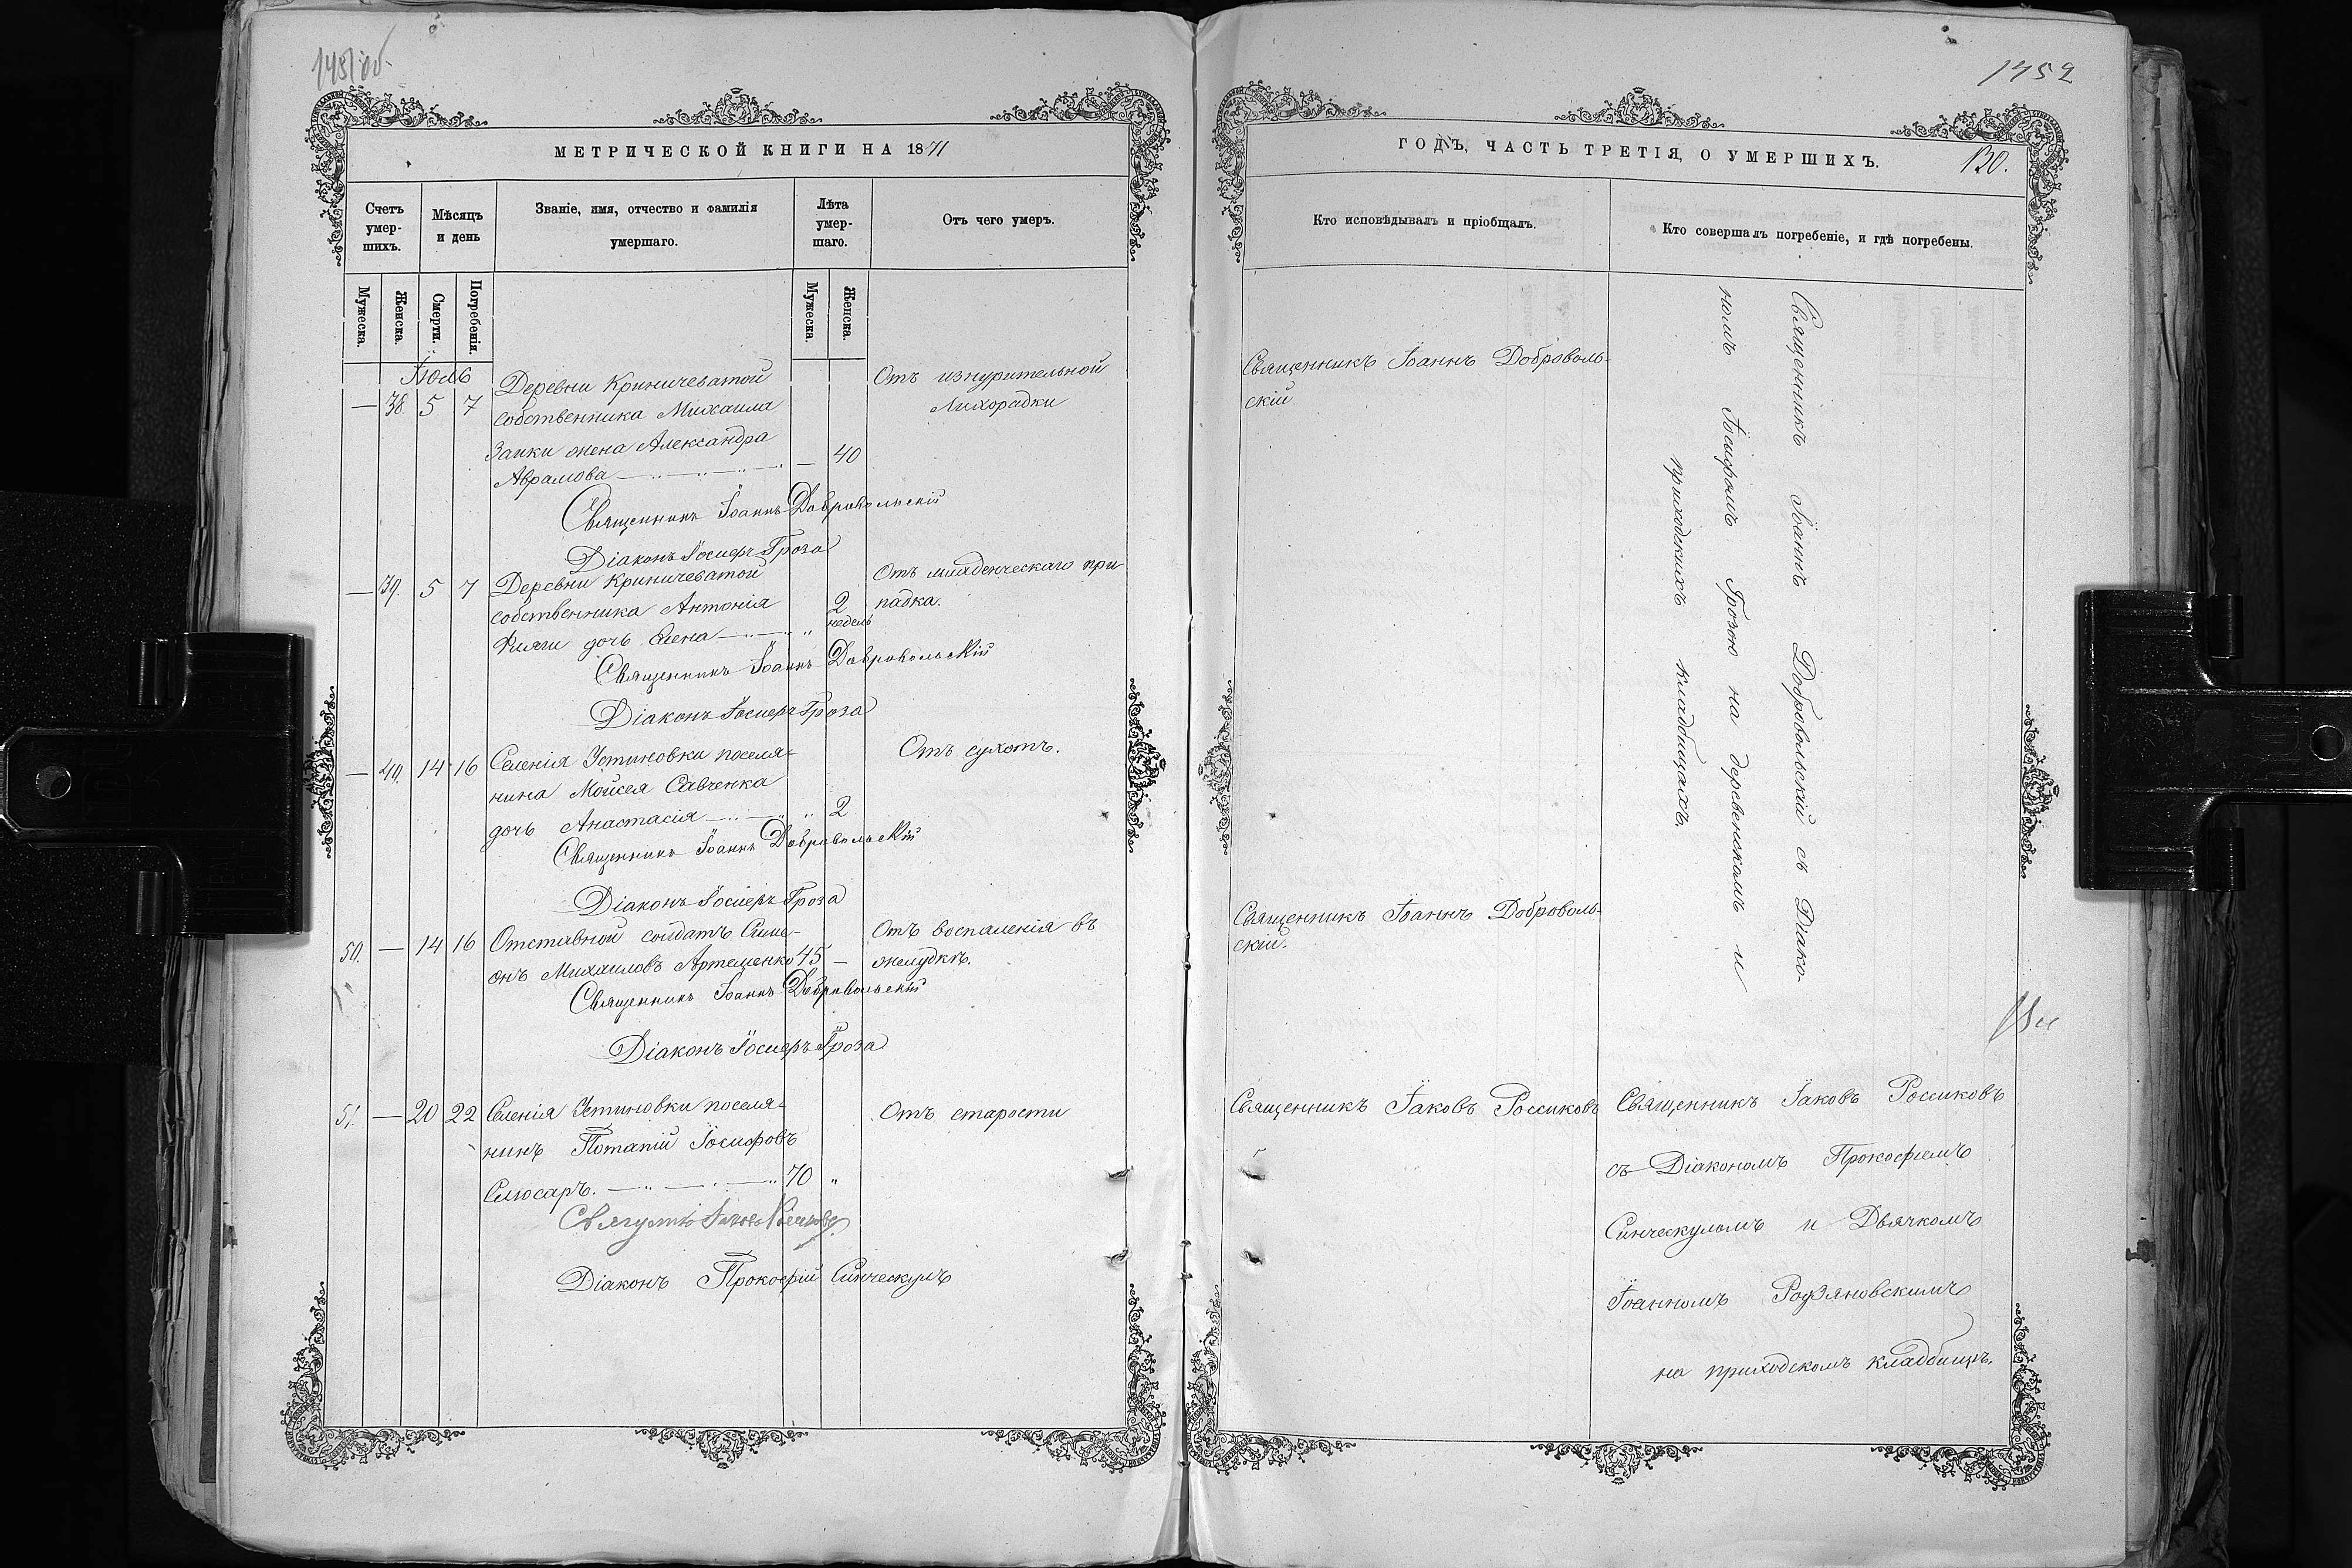 1451 об
МЕТРИЧЕСКОЙ КНИГИ НА 1871
Счетъ умер-шихъ.
Мѣсяцъ и день
Званіе, имя, отчество и фамилія умершаго.
Лѣта умер-шаго.
Отъ чего умеръ.
Мужеска.
Женска.
Смерти.
Погребенія.
Мужеска.
Женска.
Іюль
— 38. 5 7 Деревни Криничеватой
собственника Михаила
Заики жена Александра
Аврамова — 40
Отъ изнурительной
Лихорадки
Священникъ Іоаннъ Добровольскій
Діаконъ Іосифъ Гроза
— 39. 5 7 Деревни Криничеватой
собственника Антонія
дочь Елена 2 недѣль
Отъ младенческаго при
падка.
Священникъ Іоаннъ Добровольскій
Діаконъ Іосифъ Гроза
— 40. 14 16 Селенія Устиновки поселя-
нина Мойсея Савченка
дочь Анастасія 2
Отъ сухотъ.
Священникъ Іоаннъ Добровольскій
Діаконъ Іосифъ Гроза
50. — 14 16 Отставной солдатъ Симе-
онъ Михаиловъ Артеменко 45 —
Отъ воспаленія въ
желудкѣ.
Священникъ Іоаннъ Добровольскій
Діаконъ Іосифъ Гроза
51. — 20 22 Селенія Устиновки поселя-
нинъ Потапій Іосифовъ
Слюсаръ. 70
Отъ старости
Діаконъ Прокофій Синческулъ
1452
ГОДЪ, ЧАСТЬ ТРЕТІЯ, О УМЕРШИХЪ.
130.
Кто исповѣдывалъ и пріобщалъ.
Кто совершалъ погребеніе, и гдѣ погребены.
Священникъ Іоаннъ Доброволь-
скій
Священникъ Іоаннъ Добровольскій съ Діако-
номъ Іосифомъ Грозою на деревенскомъ и
приходскихъ кладбищахъ.
Священникъ Іоаннъ Доброволь-
скій.
Священникъ Іаковъ Россиковъ
Священникъ Іаковъ Россиковъ
съ Діакономъ Прокофіемъ
Синческуломъ и Дьячкомъ
Іоанномъ Родзяновскимъ
на приходскомъ кладбищѣ.